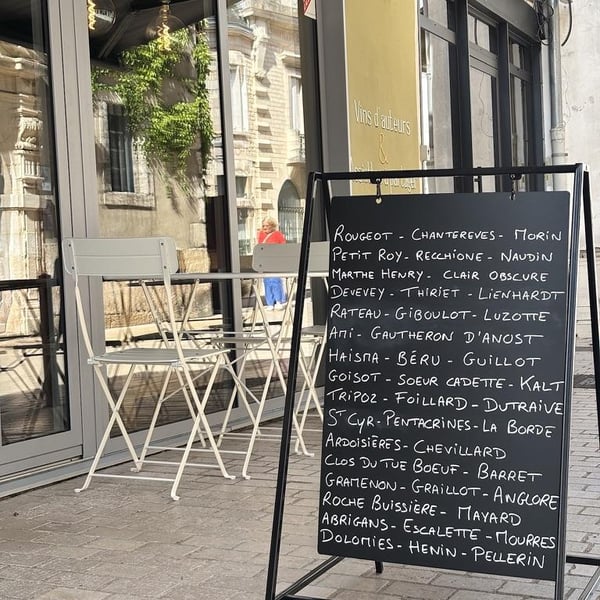 Vins d'auteurs
&
ROUGEOT - CHANTEREVES - MORIN
PETIT ROY - RECCHIONE - NAUDIN
MARTHE HENRY - CLAIR OBSCURE
DEVEVEY - THIRIET - LIENHARDT
RATEAU - GIBOULOT - LUZOTTE
AMI - GAUTHERON D'ANOST
HAISMA - BÉRU - GUILLOT
GOISOT - SOEUR CADETTE - KALT
TRIPOZ - FOILLARD - DUTRAIVE
ST CYR - PENTACRINES - LA BORDE
ARDOISIÈRES - CHEVILLARD
CLOS DU TUE BOEUF - BARRET
GRAMENON - GRAILLOT - ANGLORE
ROCHE BUISSIÈRE - MAYARD
ABRIGANS - ESCALETTE - MOURRES
DOLOMIES - HENIN - PELLERIN